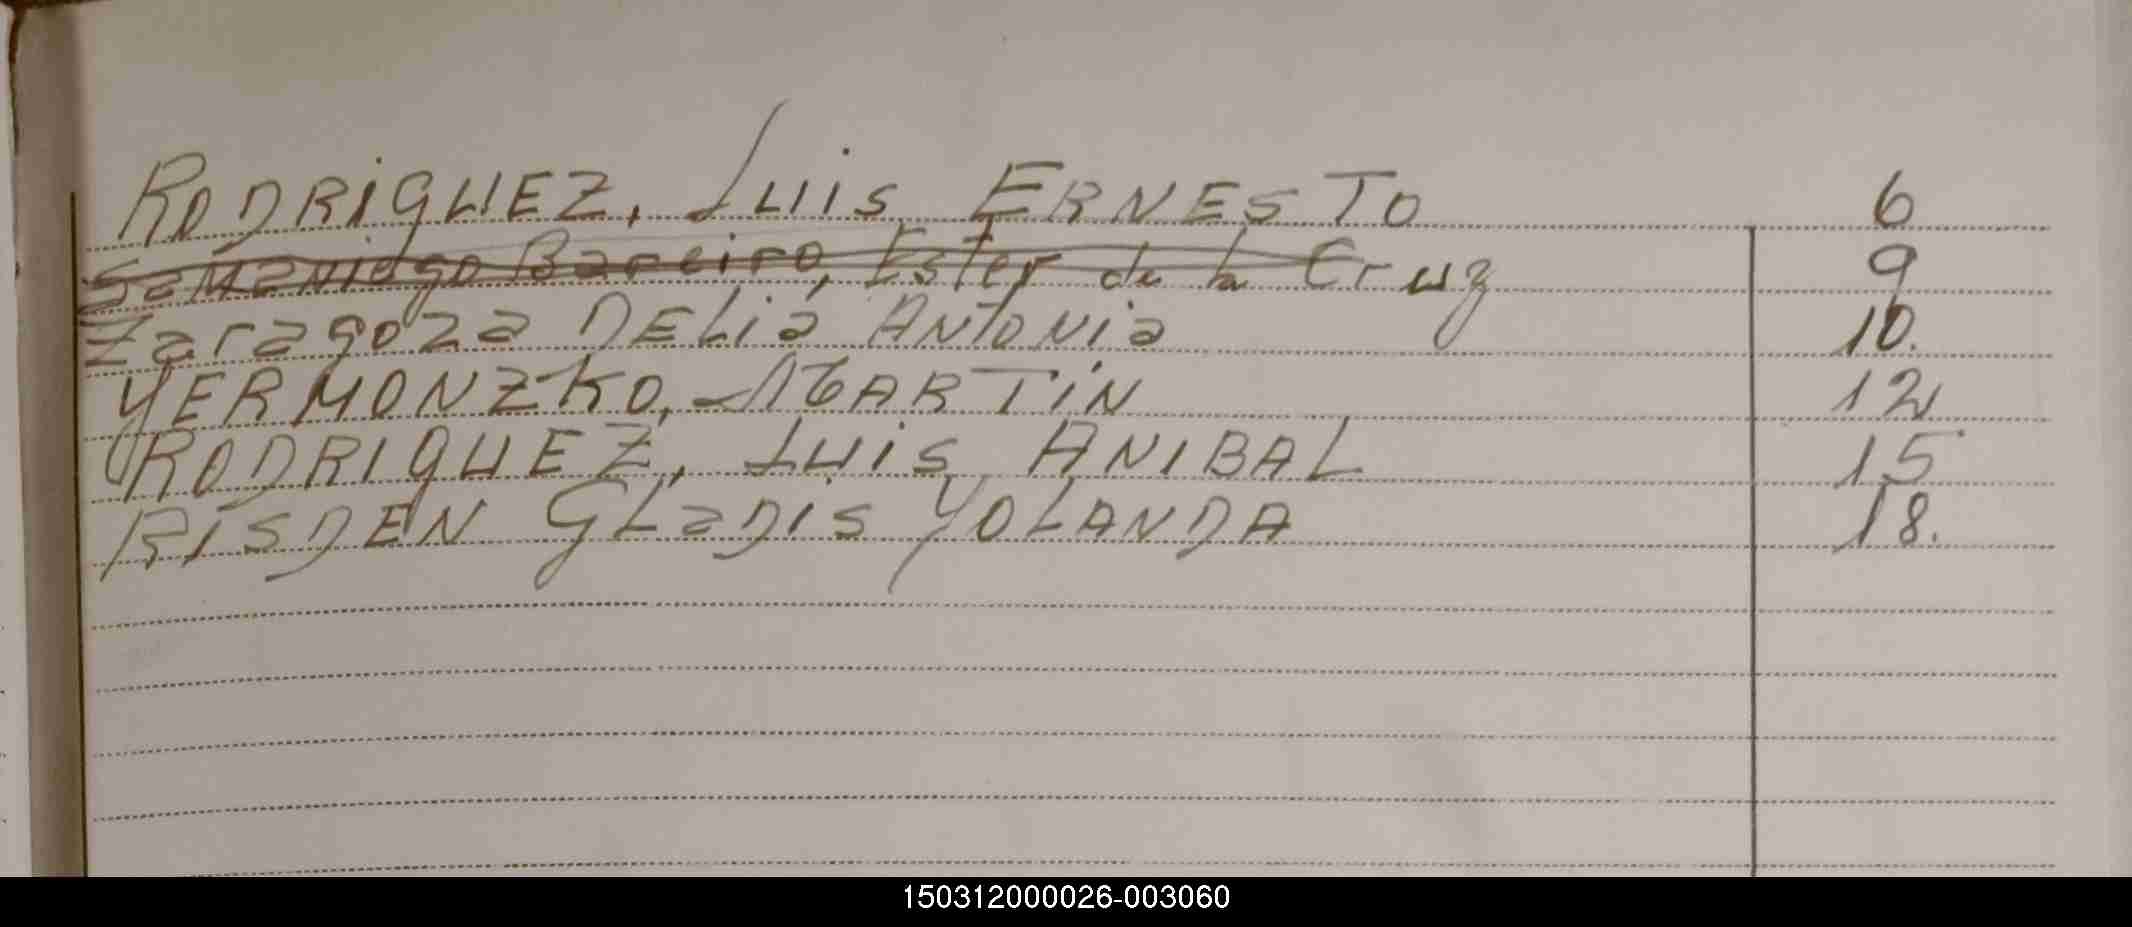 RODRIGUEZ, LUIS ERNESTO 6
Samaniego Bareiro, Ester de la Cruz 9
Zaragoza DELia ANTONia 10.
YERMONZKO, MARTIN 12
RODRIGUEZ, LUIS ANIBAL 15
RISDEN GLaDIS YOLANDA 18.
150312000026-003060